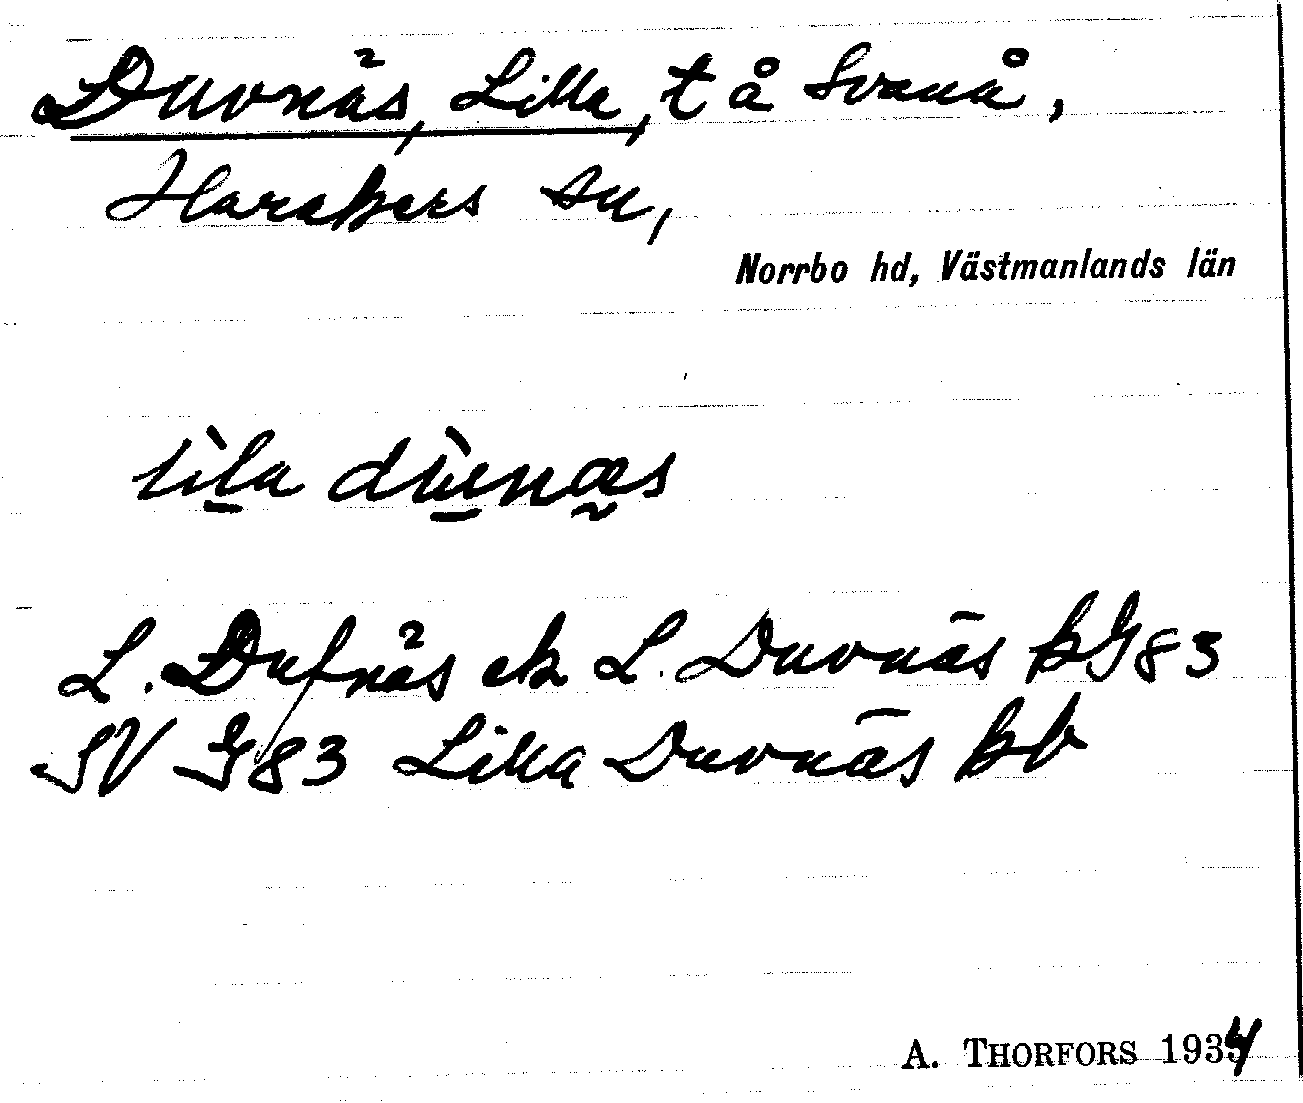 Duvnäs, Lilla, t å Svanå,
Harakers sn,
Norrbo hd, Västmanlands län
lìla dùvnæs
L. Dufnäs ek L. Duvnäs bG83
SV G83 Lilla Duvnäs kb
A. THORFORS 1934